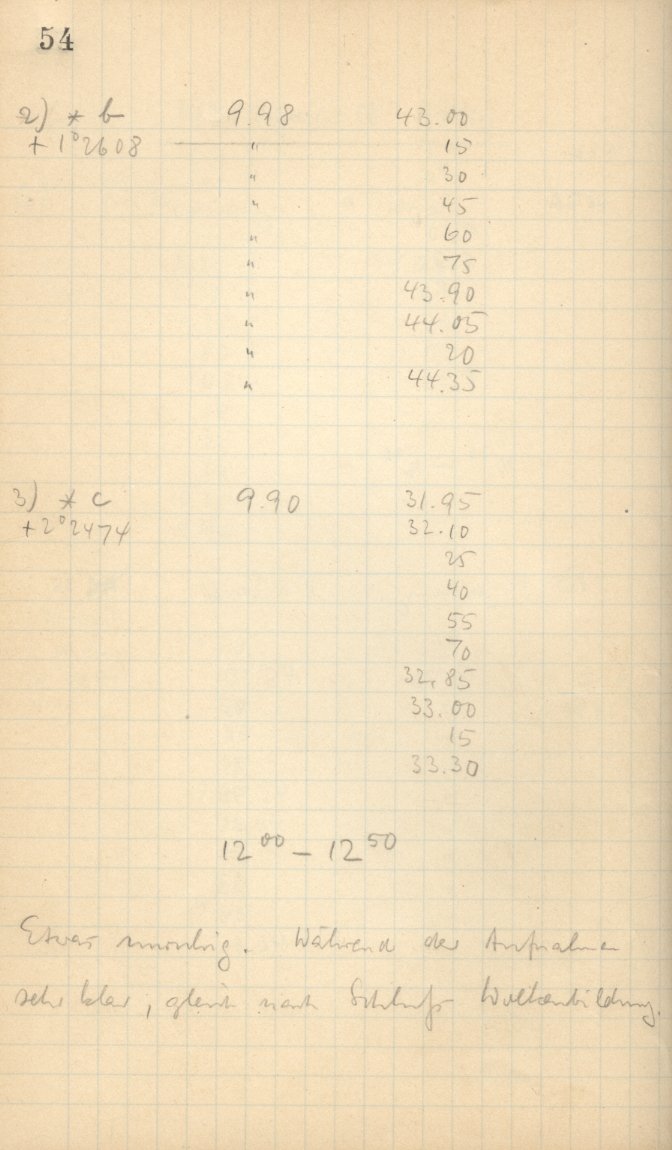 54
2) * b 9.98 43.00
+1°2608 " 15
" 30
" 45
" 60
" 75
" 43.90
" 44.05
" 20
" 44.35
3) * c 9.90 31.95
+2°2474 32.10
25
40
55
70
32.85
33.00
15
33.30
12⁰⁰ – 12⁵⁰
Etwas unruhig. Während der Aufnahmen
sehr klar, gleich nach Schluß Wolkenbildung.